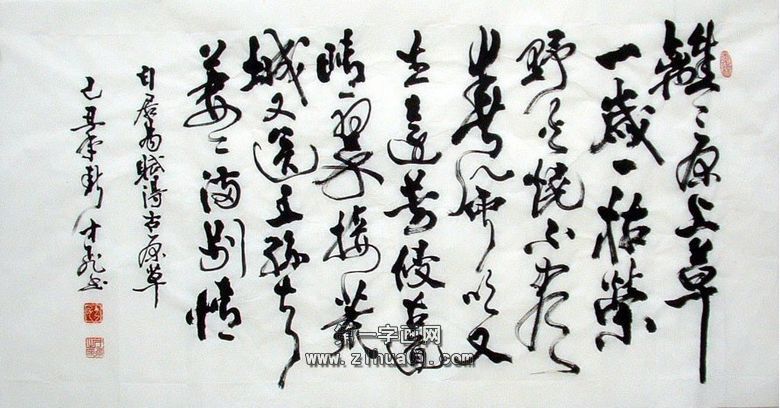 離〻原上草
一歲一枯榮
野火燒不盡
春風吹又
生遠芳侵古道
晴翠接荒
城又送王孫去
萋〻滿別情
白居易賦得古原草
己丑年
第一字画网